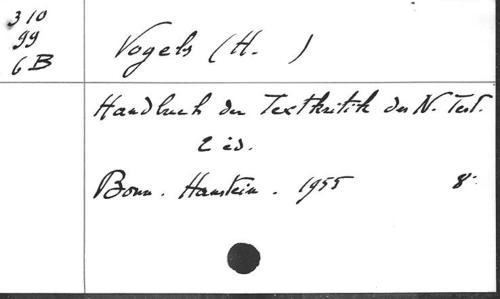 310
99
6B
Vogels (H. )
Handbuch der Textkritik des N. Test.
2 éd.
Bonn. Hanstein. 1955 8°